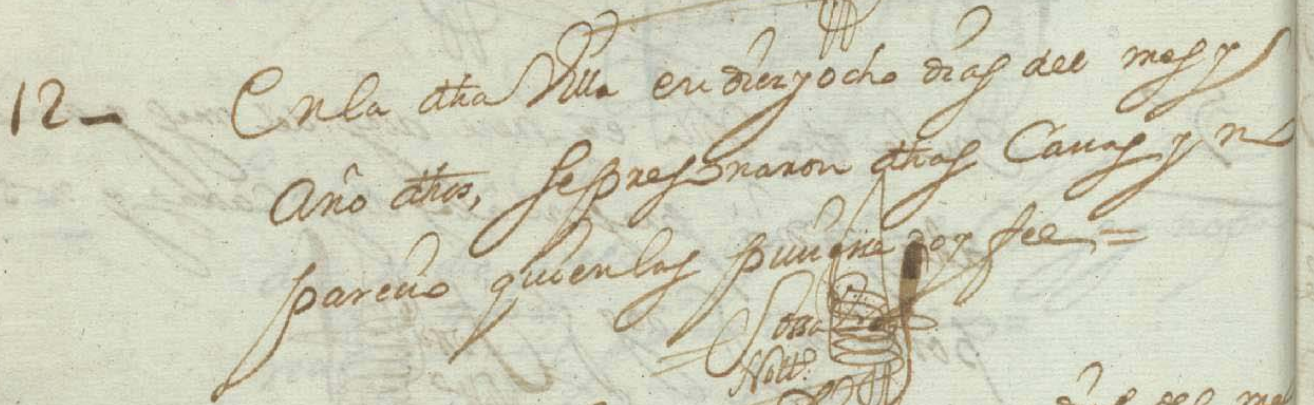 12- En la dha Villa en diez y ocho dias del mes y
Año dhos, se pregonaron dhas Casas y no
parecio quien las pusiese doy fee =
= Sossa
Nott.o